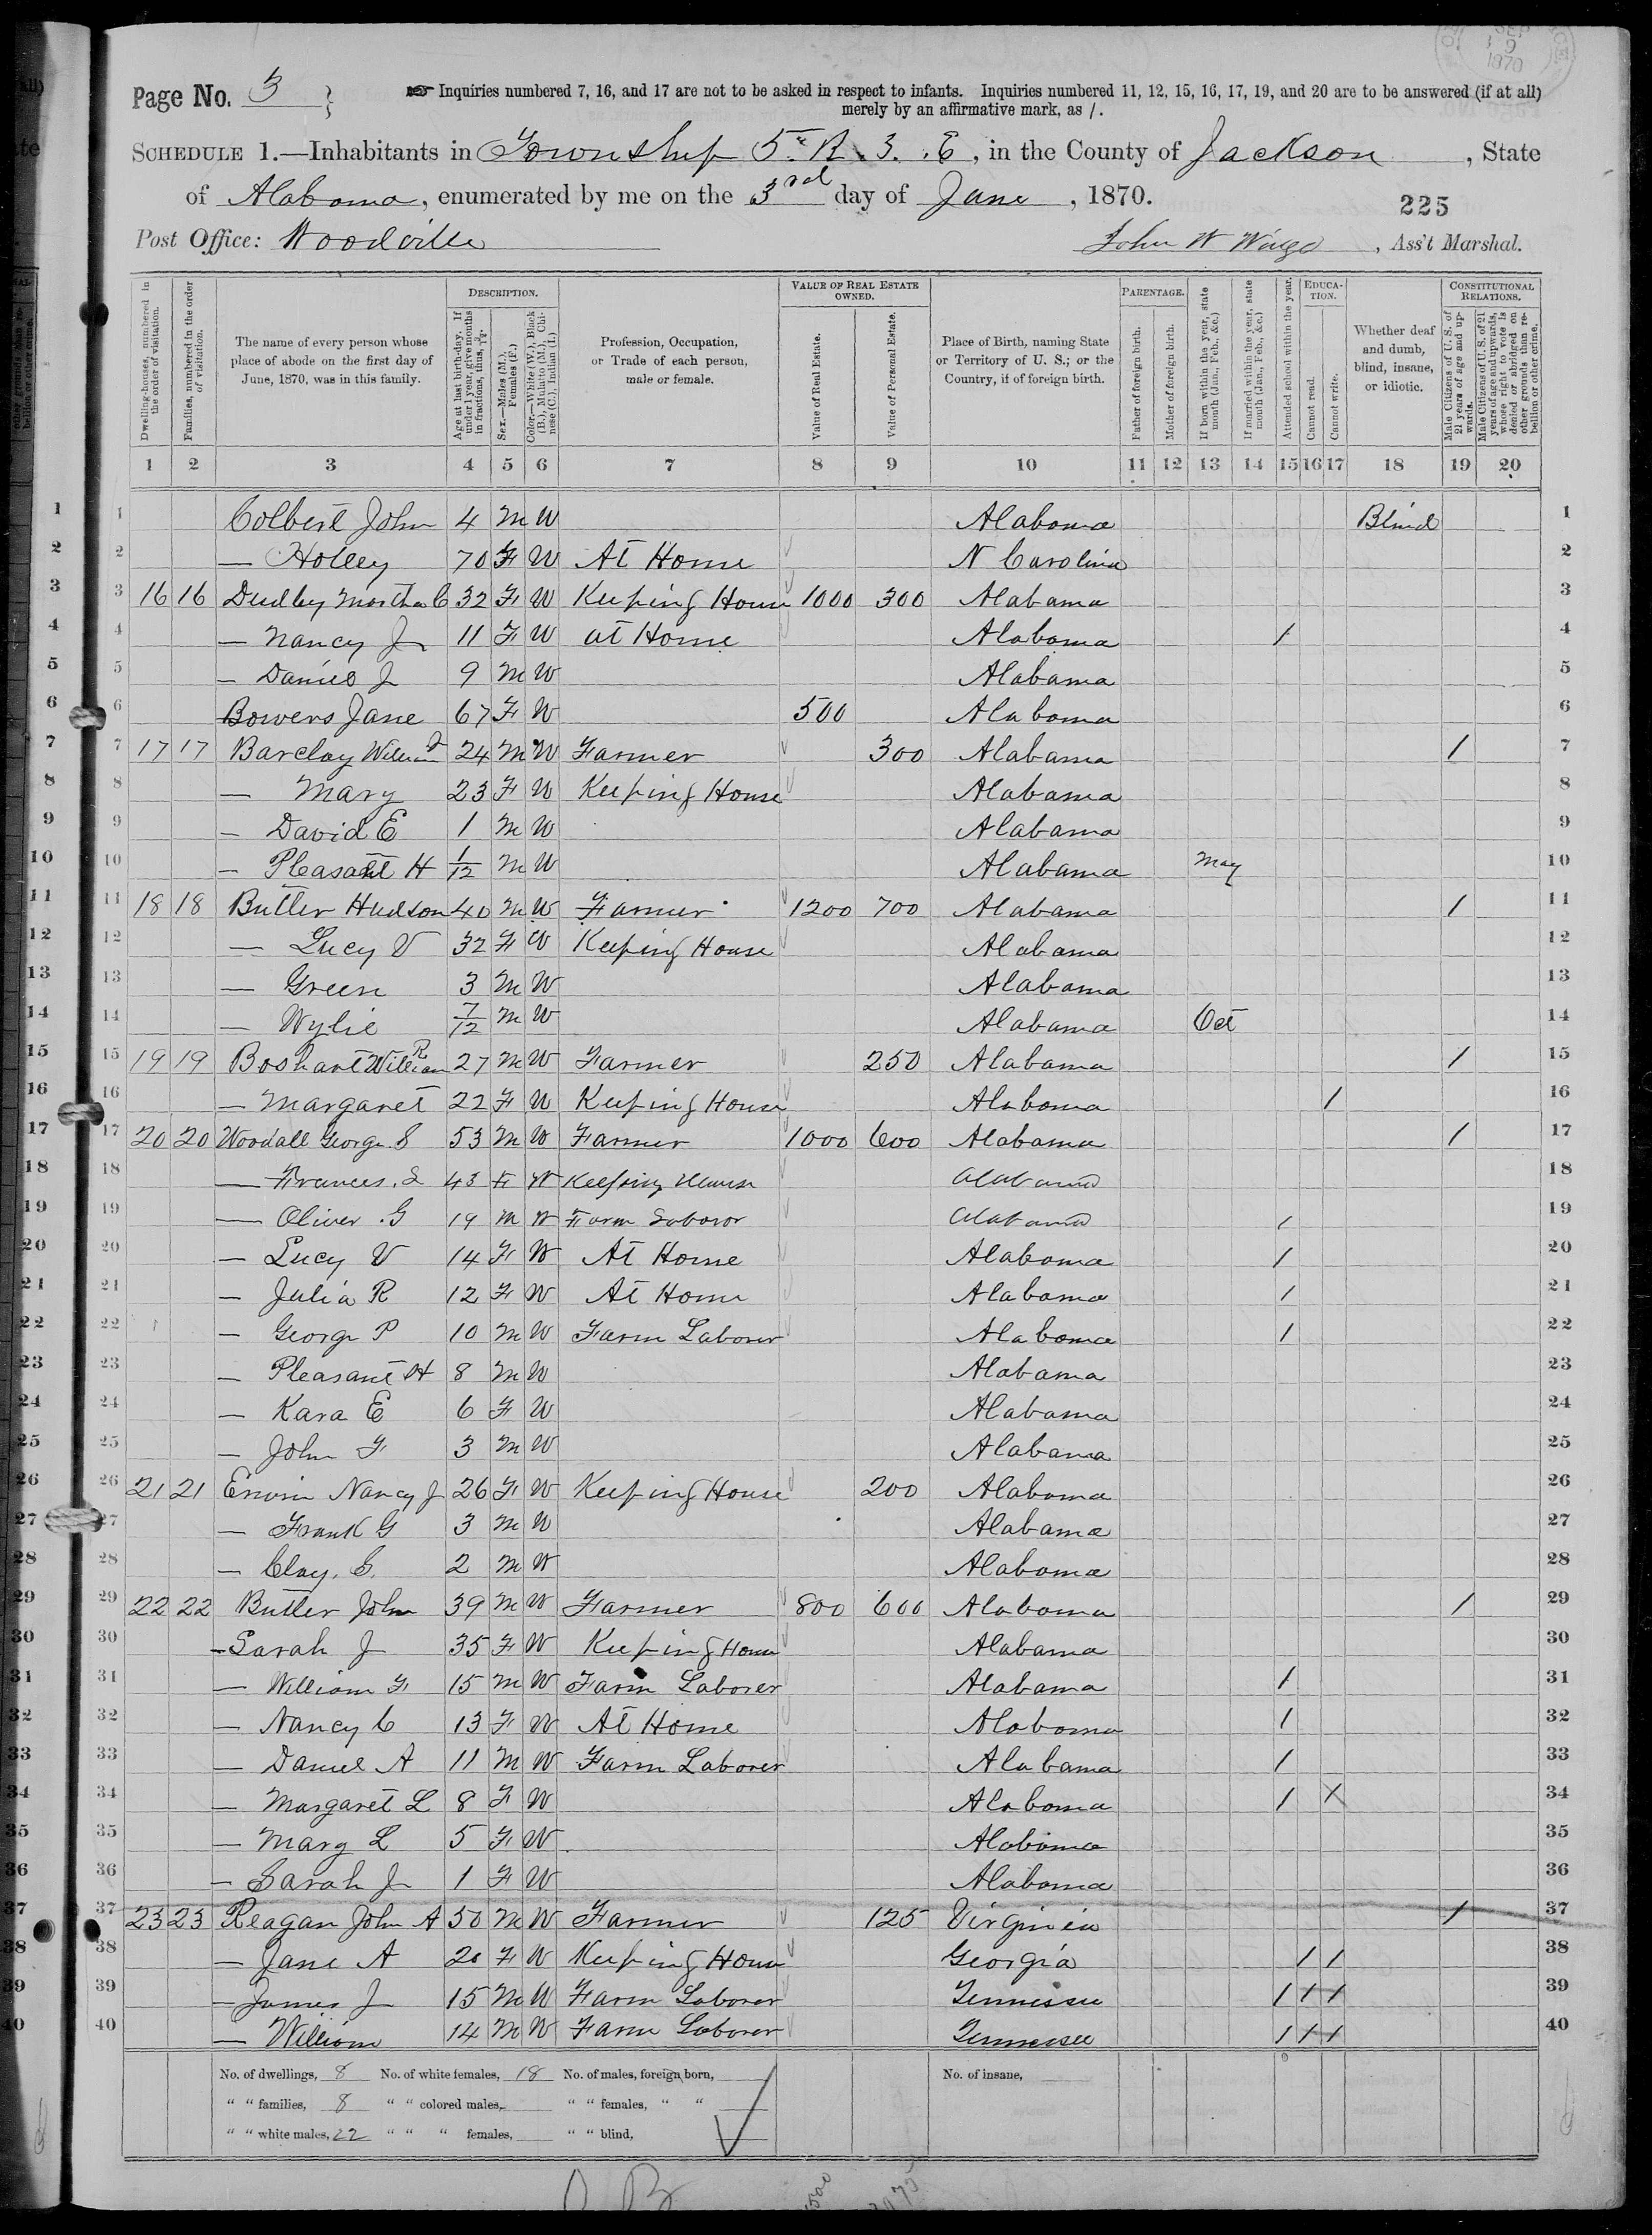 Page No. 3 } Inquiries numbered 7, 16, and 17 are not to be asked in respect to infants. Inquiries numbered 11, 12, 15, 16, 17, 19, and 20 are to be answered (if at all)
merely by an affirmative mark, as /.
SCHEDULE 1.—Inhabitants in Township 5. R. 3. E, in the County of Jackson, State
of Alabama, enumerated by me on the 3rd day of June, 1870.
225
Post Office: Woodville John W Wingo, Ass't Marshal.
Dwelling-houses, numbered in the order of visitation.
Families, numbered in the order of visitation.
The name of every person whose place of abode on the first day of June, 1870, was in this family.
DESCRIPTION.
Age at last birth-day. If under 1 year, give months in fractions, thus, 3/12.
Sex.—Males (M.), Females (F.)
Color.—White (W.), Black (B.), Mulatto (M.), Chinese (C.), Indian (I.)
Profession, Occupation, or Trade of each person, male or female.
VALUE OF REAL ESTATE OWNED.
Value of Real Estate.
Value of Personal Estate.
Place of Birth, naming State or Territory of U. S.; or the Country, if of foreign birth.
PARENTAGE.
Father of foreign birth.
Mother of foreign birth.
If born within the year, state month (Jan., Feb., &c.)
If married within the year, state month (Jan., Feb., &c.)
Attended school within the year.
EDUCATION.
Cannot read.
Cannot write.
Whether deaf and dumb, blind, insane, or idiotic.
CONSTITUTIONAL RELATIONS.
Male Citizens of U. S. of 21 years of age and upwards.
Male Citizens of U. S. of 21 years of age and upwards, whose right to vote is denied or abridged on other grounds than rebellion or other crime.
1 2 3 4 5 6 7 8 9 10 11 12 13 14 15 16 17 18 19 20
1 Colbert John 4 M W Alabama Blind 1
2 — Holley 70 F W At Home N Carolina 2
3 16 16 Dudley Martha C 32 F W Keeping House 1000 300 Alabama 3
4 — Nancy J 11 F W at Home Alabama / 4
5 — J 9 M W Alabama 5
6 Bowers Jane 67 F W 500 Alabama 6
7 17 17 Barclay William 24 M W Farmer 300 Alabama / 7
8 — Mary 23 F W Keeping House Alabama 8
9 — David E 1 M W Alabama 9
10 — Pleasant H 1/12 M W Alabama May 10
11 18 18 Butler Hudson 40 M W Farmer 1200 700 Alabama / 11
12 — Lucy V 32 F W Keeping House Alabama 12
13 — Green 3 M W Alabama 13
14 — Wylie 7/12 M W Alabama Oct 14
15 19 19 Boshart William R 27 M W Farmer 250 Alabama / 15
16 — Margaret 22 F W Keeping House Alabama / 16
17 20 20 Woodall George S 53 M W Farmer 1000 600 Alabama / 17
18 — Frances. S 43 F W Keeping House Alabama 18
19 — Oliver. G 19 M W Farm Laboror Alabama / 19
20 — Lucy V 14 F W At Home Alabama / 20
21 — Julia R 12 F W At Home Alabama / 21
22 — George P 10 M W Farm Laborer Alabama / 22
23 — Pleasant H 8 M W Alabama 23
24 — Kara E 6 F W Alabama 24
25 — John F 3 M W Alabama 25
26 21 21 Nancy J 26 F W Keeping House 200 Alabama 26
27 — Frank G 3 M W Alabama 27
28 — Clay. 2 M W Alabama 28
29 22 22 Butler John 39 M W Farmer 800 600 Alabama / 29
30 — Sarah J 35 F W Keeping House Alabama 30
31 — William F 15 M W Farm Laborer Alabama / 31
32 — Nancy C 13 F W At Home Alabama / 32
33 — Daniel A 11 M W Farm Laborer Alabama / 33
34 — Margaret L 8 F W Alabama / X 34
35 — Mary L 5 F W Alabama 35
36 — Sarah J 1 F W Alabama 36
37 23 23 Reagan John A 50 M W Farmer 125 Virginia / 37
38 — Jane A 20 F W Keeping House Georgia / / 38
39 — James J 15 M W Farm Laborer Tennessee / / / 39
40 — William 14 M W Farm Laborer Tennessee / / / 40
No. of dwellings, 8 No. of white females, 18 No. of males, foreign born, No. of insane,
" " families, 8 " " colored males, " " females, " "
" " white males, 22 " " " females, " " blind,